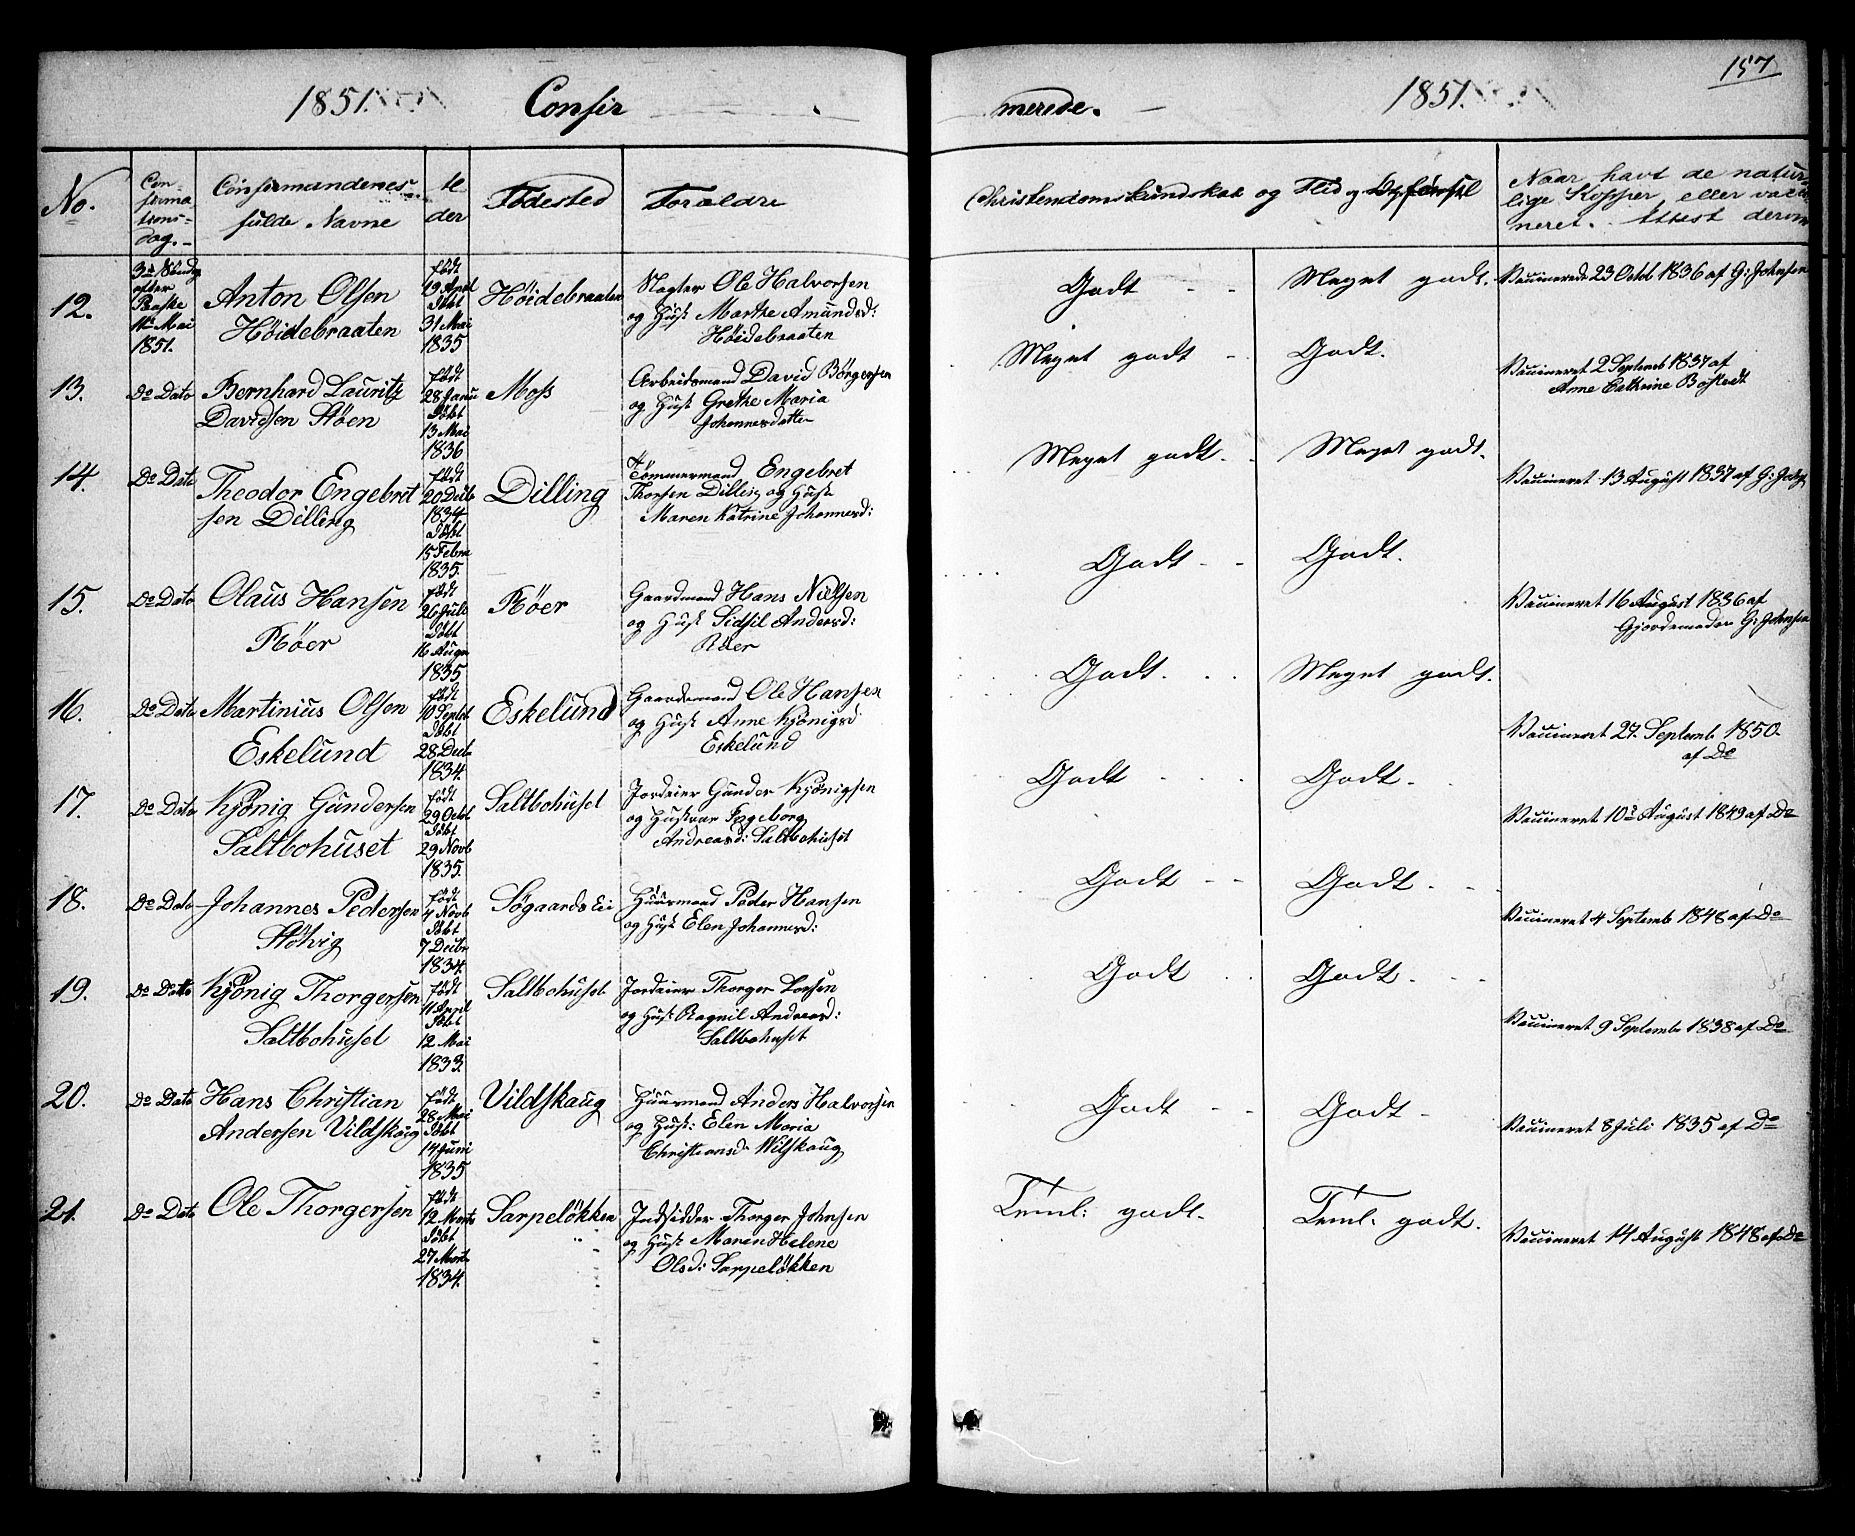 157
1851. Confir merede. 1851.
No.
Con-
firma
tions-
dag.
Confirmandenes
fulde Navne
Al
der
Födested
Forældre
Christendomskundskab og Flid og Opförsel
Naar havt de natur-
lige Kopper eller vacci-
neret. Attest derom
12.
3die Söndag
efter
Paaske
11te Mai
1851.
Anton Olsen
Höidebraaten
Född
19 April
Döbt
31 Mai
1835
Höidebraaten
Ole Halvorsen
og Hust Marthe Amundsd:
Höidebraaten
Godt
Meget godt.
Vaccinerede 23 Octob 1836 af G: Johnsen
13.
Do Dato
Bernhard Lauritz
Davidsen Stöen
Född
28 Janu
Döbt
13 Mai
1836
Moss
Arbeidsmand David Börgersen
og Hust Grethe Maria
Johannesdatter
Meget godt
Godt.
Vaccineret 2 Septemb 1837 af
Anne Cathrine
14.
Do Dato
Theodor Engebret
sen Dilling
Född
20 Decb
1834
Döbt
15 Febru
1835.
Dilling
Tömmermand Engebret
Thorsen Dilling og Hust
Maren Katrine Johannesd:
Meget godt.
Meget godt.
Vaccineret 13 August 1837 af G:
15.
Do Dato
Olaus Hansen
Röer
Född
26 Juli
Döbt
16 Augu
1835
Röer
Gaardmand Hans Nielsen
og Hust Sidsil Andersd:
Röer
Godt
Godt.
Vaccineret 16 August 1836 af
Gjordemoder G: Johnsen
16.
Do Dato
Martinius Olsen
Eskelund
Född
10 Septbr
Döbt
28 Decb
1834.
Eskelund
Gaardmand Ole Hansen
og Hust Anne Kjönigsd
Eskelund
Godt.
Meget godt.
Vaccineret 27. Septemb 1850.
af Do
17.
Do Dato
Kjönig Gundersen
Saltbohuset
Född
29 Octob
Döbt
29 Novb
1835.
Saltbohuset
Jordeier Gunder Kjönigsen
og Hustrue Ingeborg
Andreasd: Saltbohuset
Godt
Godt.
Vaccineret 10de August 1849 af Do
18.
Do Dato
Johannes Pedersen
Stölvig
Född
4 Novb
Döbt
7 Decbr
1834.
Sögaards Ei
Huusmand Peder Hansen
og Hust Elen Johannesd:
Godt
Godt.
Vaccineret 4 Septemb 1848 af Do
19.
Do Dato
Kjönig Thorgersen
Saltbohuset
Född
11 April
Döbt
12 Mai
1833.
Saltbohuset
Jordeier Thorger Larsen
og Hust Ragnil Andreasd:
Saltbohuset
Godt
Godt.
Vaccineret 9 Septembr 1838 af Do
20.
Do Dato
Hans Christian
Andersen Vildskoug
Född
28 Mai
Döbt
14 Juni
1835
Vildskaug
Huusmand Anders Halvorsen
og Hust: Elen Maria
Christiansd: Wilskaug
Godt
Godt
Vaccineret 8 Juli 1835 af Do
21.
Do Dato
Ole Thorgersen
Född
12 Marts
Döbt
27 Marts
1834.
Sarpelökken
Indsidder Thorger Johnsen
og Hust Maren Helene
Olsd: Sarpelökken
Teml: godt.
Teml: godt.
Vaccineret 14 August 1848 af Do